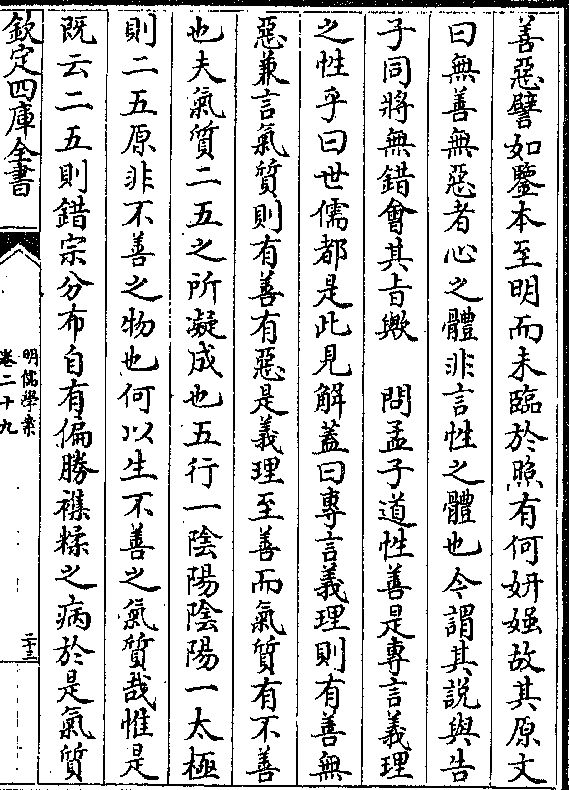 善惡譬如鑒本至明而未臨於照有何妍媸故其原文
曰無善無惡者心之體非言性之體也今謂其說與告
子同將無錯會其旨歟　問孟子道性善是專言義理
之性乎曰世儒都是此見解蓋曰專言義理則有善無
惡兼言氣質則有善有惡是義理至善而氣質有不善
也夫氣質二五之所凝成也五行一陰陽陰陽一太極
則二五原非不善之物也何以生不善之氣質哉惟是
既云二五則錯宗分布自有偏勝襍糅之病於是氣質
欽定四庫全書
明儒學案
卷二十九
二十三